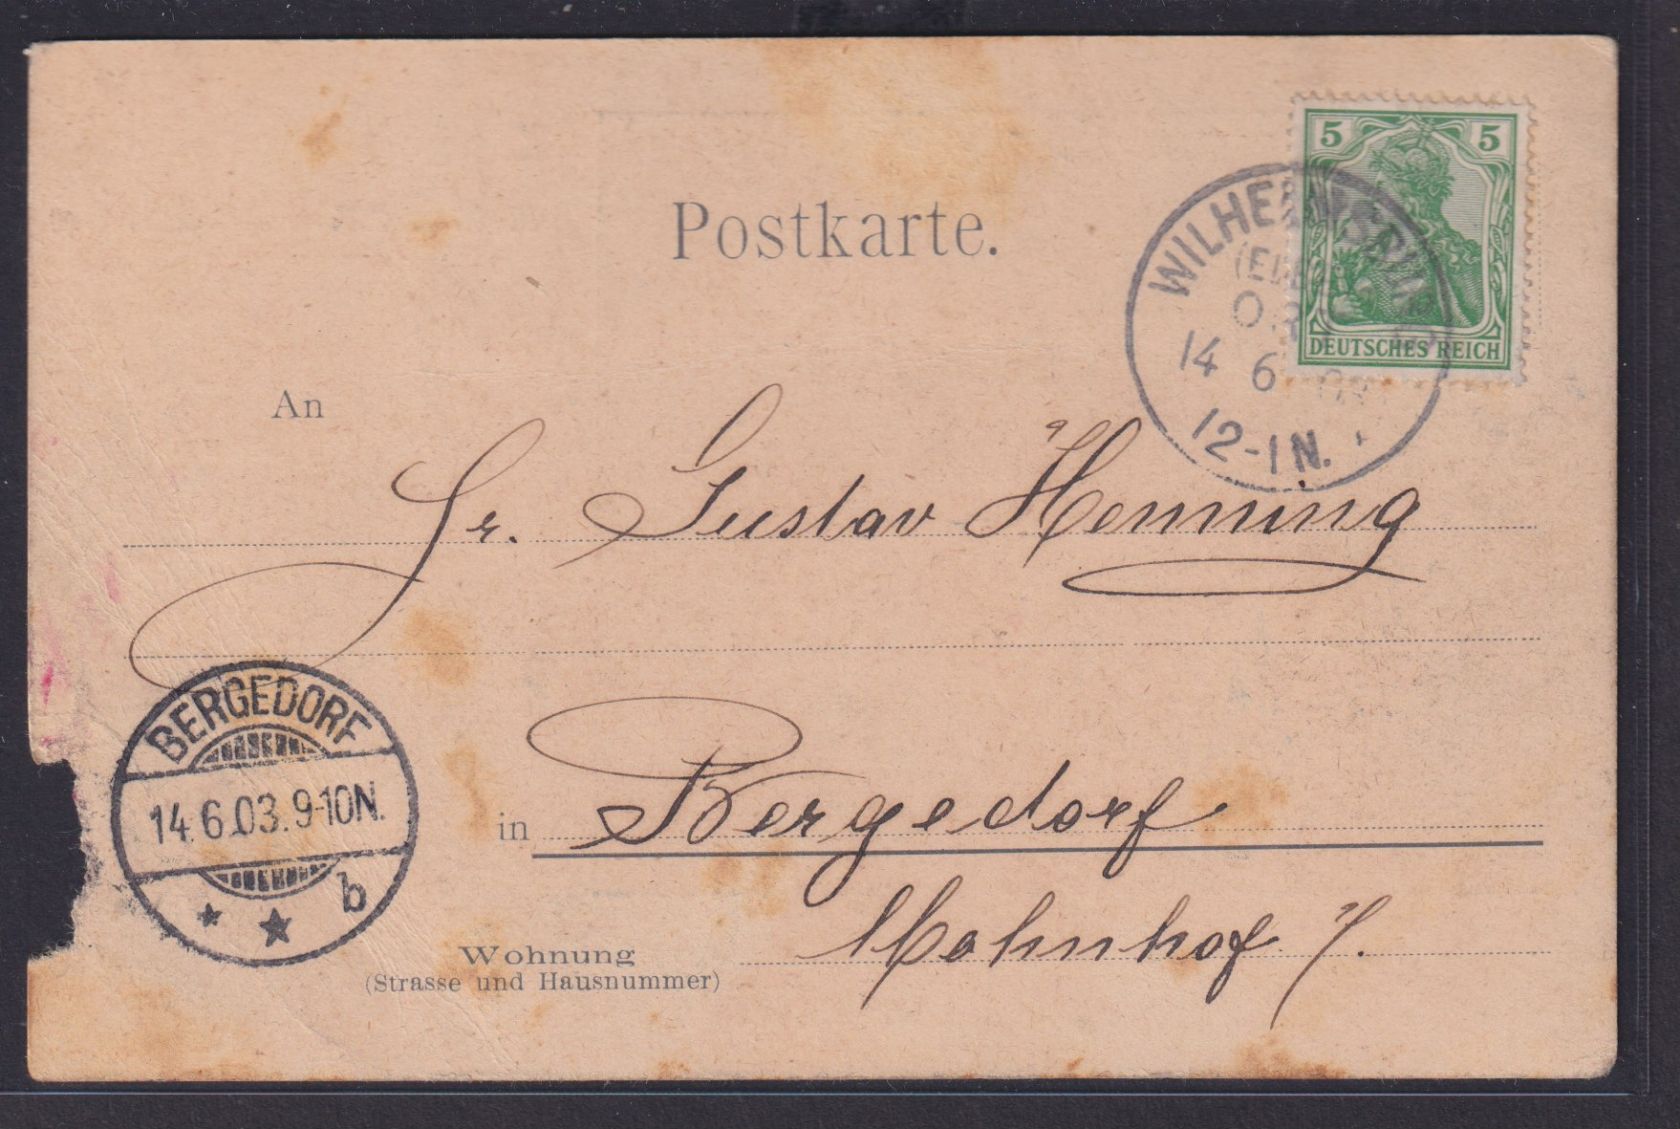 5 5
DEUTSCHES REICH
Postkarte.
WILHELMSBURG
14 6
12-1N.
An
Hr. Gustav Henning
BERGEDORF
14.6.03.9-10N.
b
in Bergedorf
Wohnung
(Strasse und Hausnummer)
Mohnhof 7.